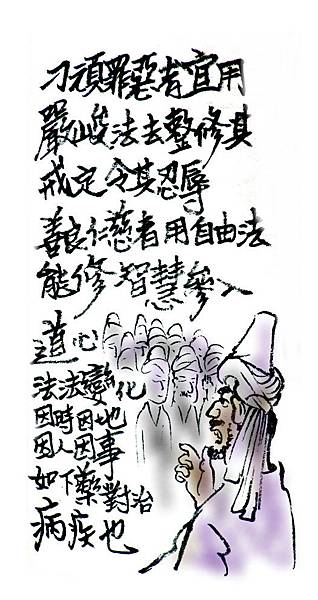 刁頑罪惡者宜用
嚴峻法去整修其
戒定令其忍辱
善良仁慈者用自由法
能修智慧參入
道心
法法變化
因時因地
因人因事
如下藥對治
病疾也